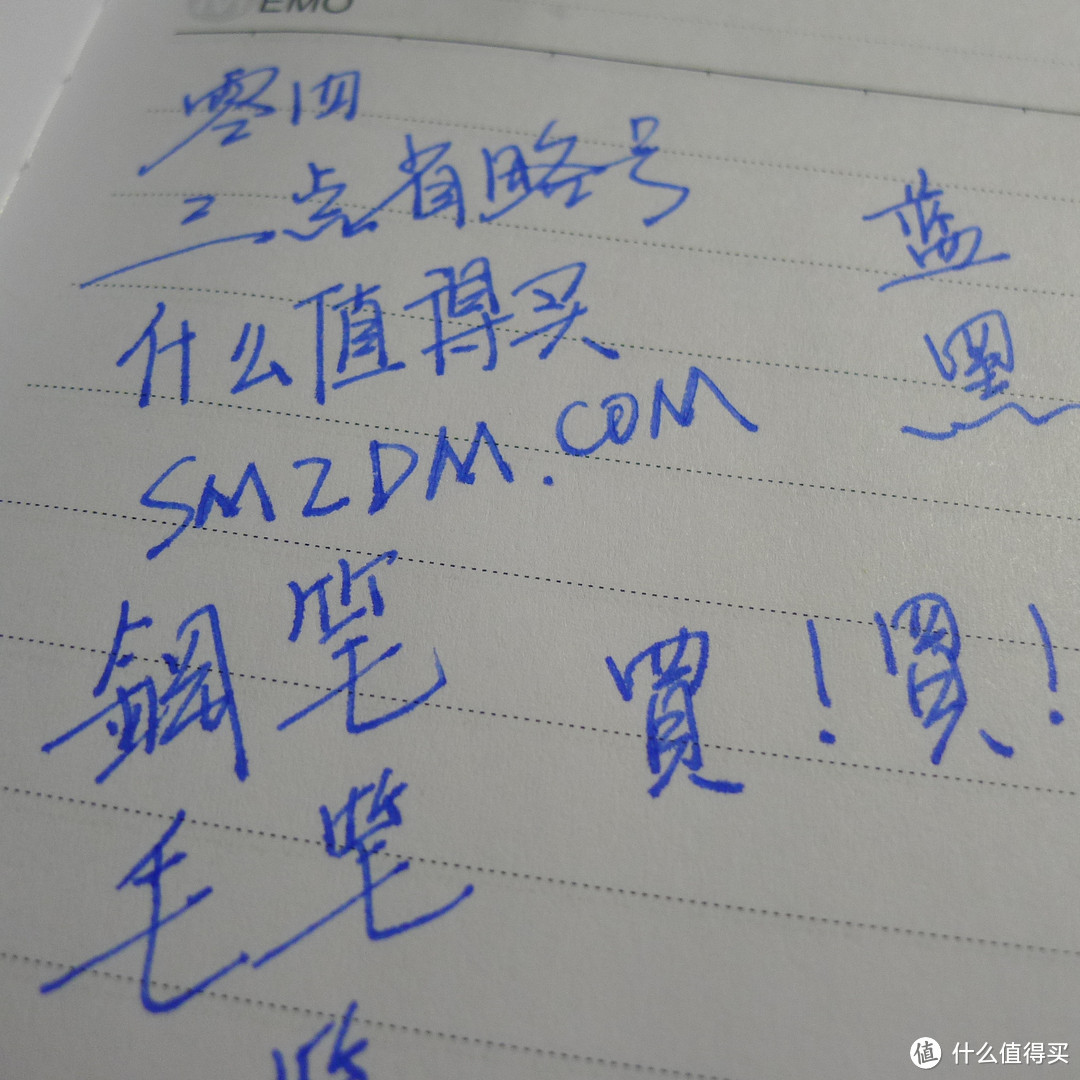 MEMO
零四
三点省略号
什么值得买
SMZDM.COM
蓝
黑
鋼笔
買！買！
毛笔
值 什么值得买